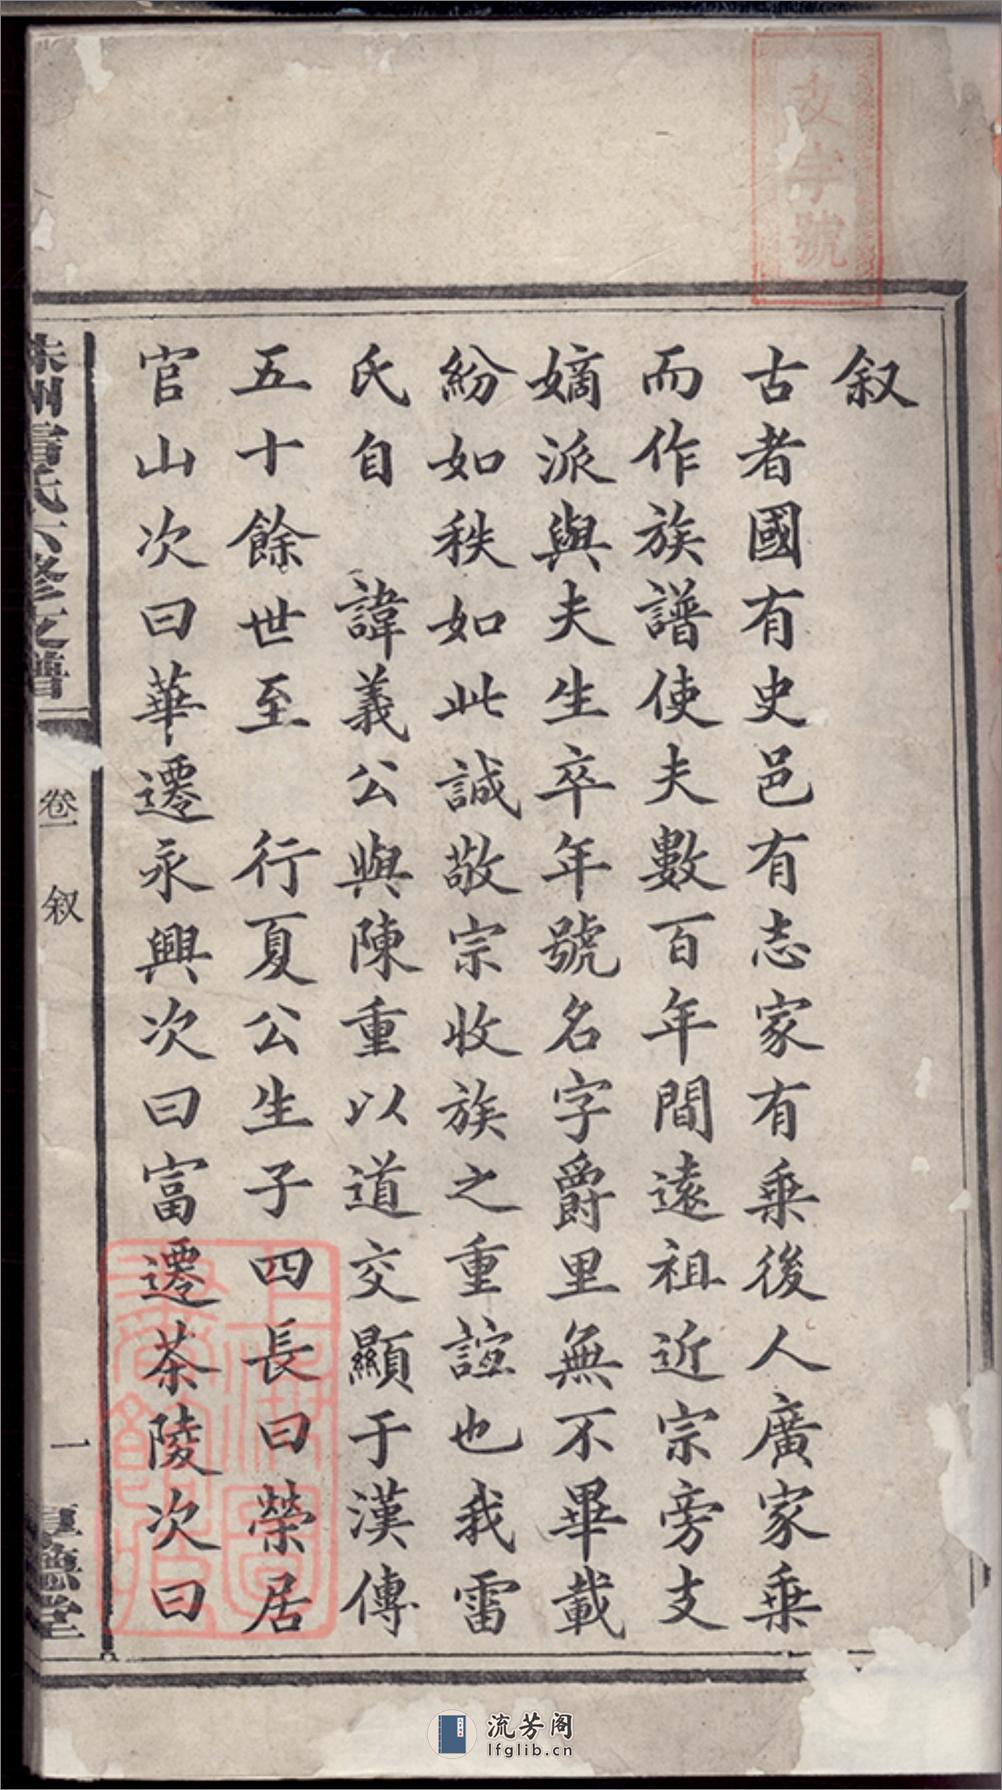 叙
古者國有史邑有志家有乗後人廣家乗
而作族譜使夫數百年間遠祖近宗旁支
嫡派與夫生卒年號名字爵里無不畢載
紛如秩如此誠敬宗收族之重誼也我雷
氏自 諱義公與陳重以道交顯于漢傳
五十餘世至 行夏公生子四長曰榮居
官山次曰華遷永興次曰富遷茶陵次曰
氏六修支譜
卷一 叙
一
德堂
字號
流芳阁
lfglib.cn